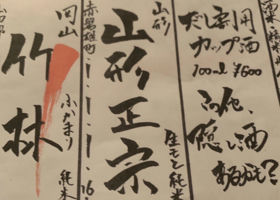 だし専用
カップ酒
100ml ¥600
隠し酒
あるかも?
山形
山形正宗
生もと純米
赤磐雄町
16
岡山
竹林
ふかまり
純米